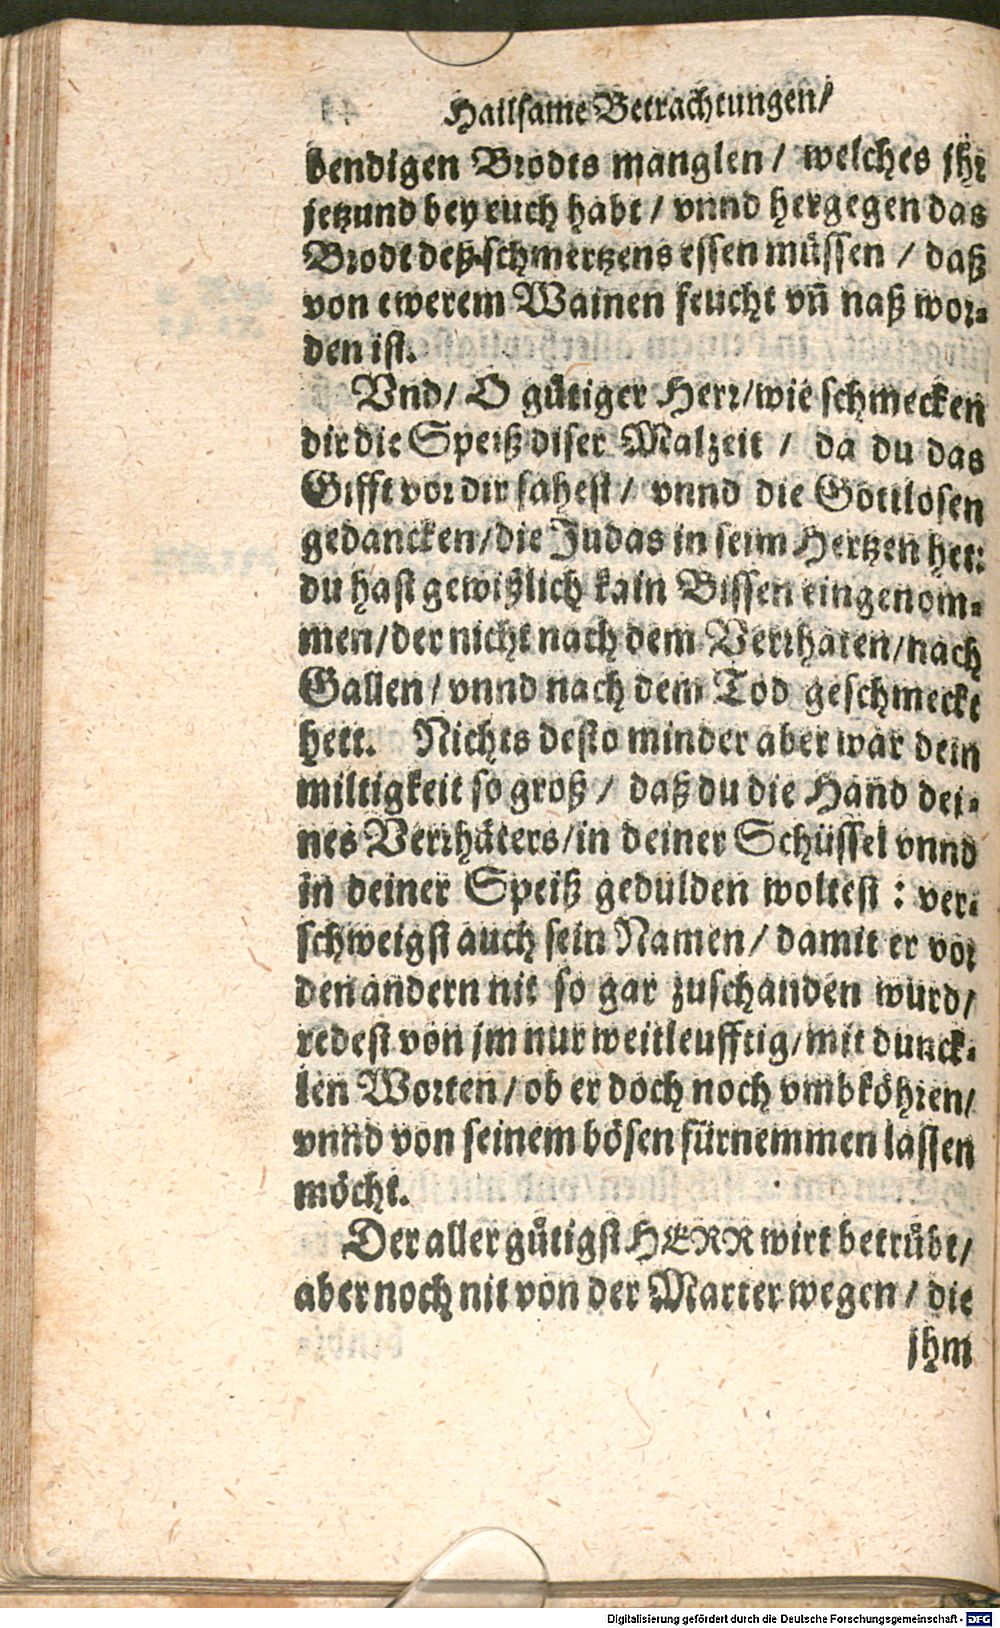 Hailsame Betrachtungen/
bendigen Brodts manglen / welches jhr
jetzund bey euch habt / vnnd hergegen das
Brodt deß schmertzens essen müssen / daß
von ewerem Wainen feucht vñ naß wor-
den ist.
Vnd/ O gütiger Herr/wie schmecken
dir die Speiß diser Malzeit / da du das
Gifft vor dir sahest / vnnd die Gottlosen
gedancken/die Judas in seim Hertzen het:
du hast gewißlich kain Bissen eingenom-
men/der nicht nach dem Verrhaten/nach
Gallen/ vnnd nach dem Tod geschmeckt
hett. Nichts desto minder aber war dein
miltigkeit so groß / daß du die Hand dei-
nes Verrhäters/in deiner Schüssel vnnd
in deiner Speiß gedulden woltest : ver-
schweigst auch sein Namen/ damit er vor
den andern nit so gar zuschanden wurd/
redest von jm nur weitleufftig/mit dunck-
len Worten/ ob er doch noch vmbköhren/
vnnd von seinem bösen fürnemmen lassen
möcht.
Der aller gütigst HERR wirt betrübt/
aber noch nit von der Marter wegen / die
jhm
Digitalisierung gefördert durch die Deutsche Forschungsgemeinschaft - DFG